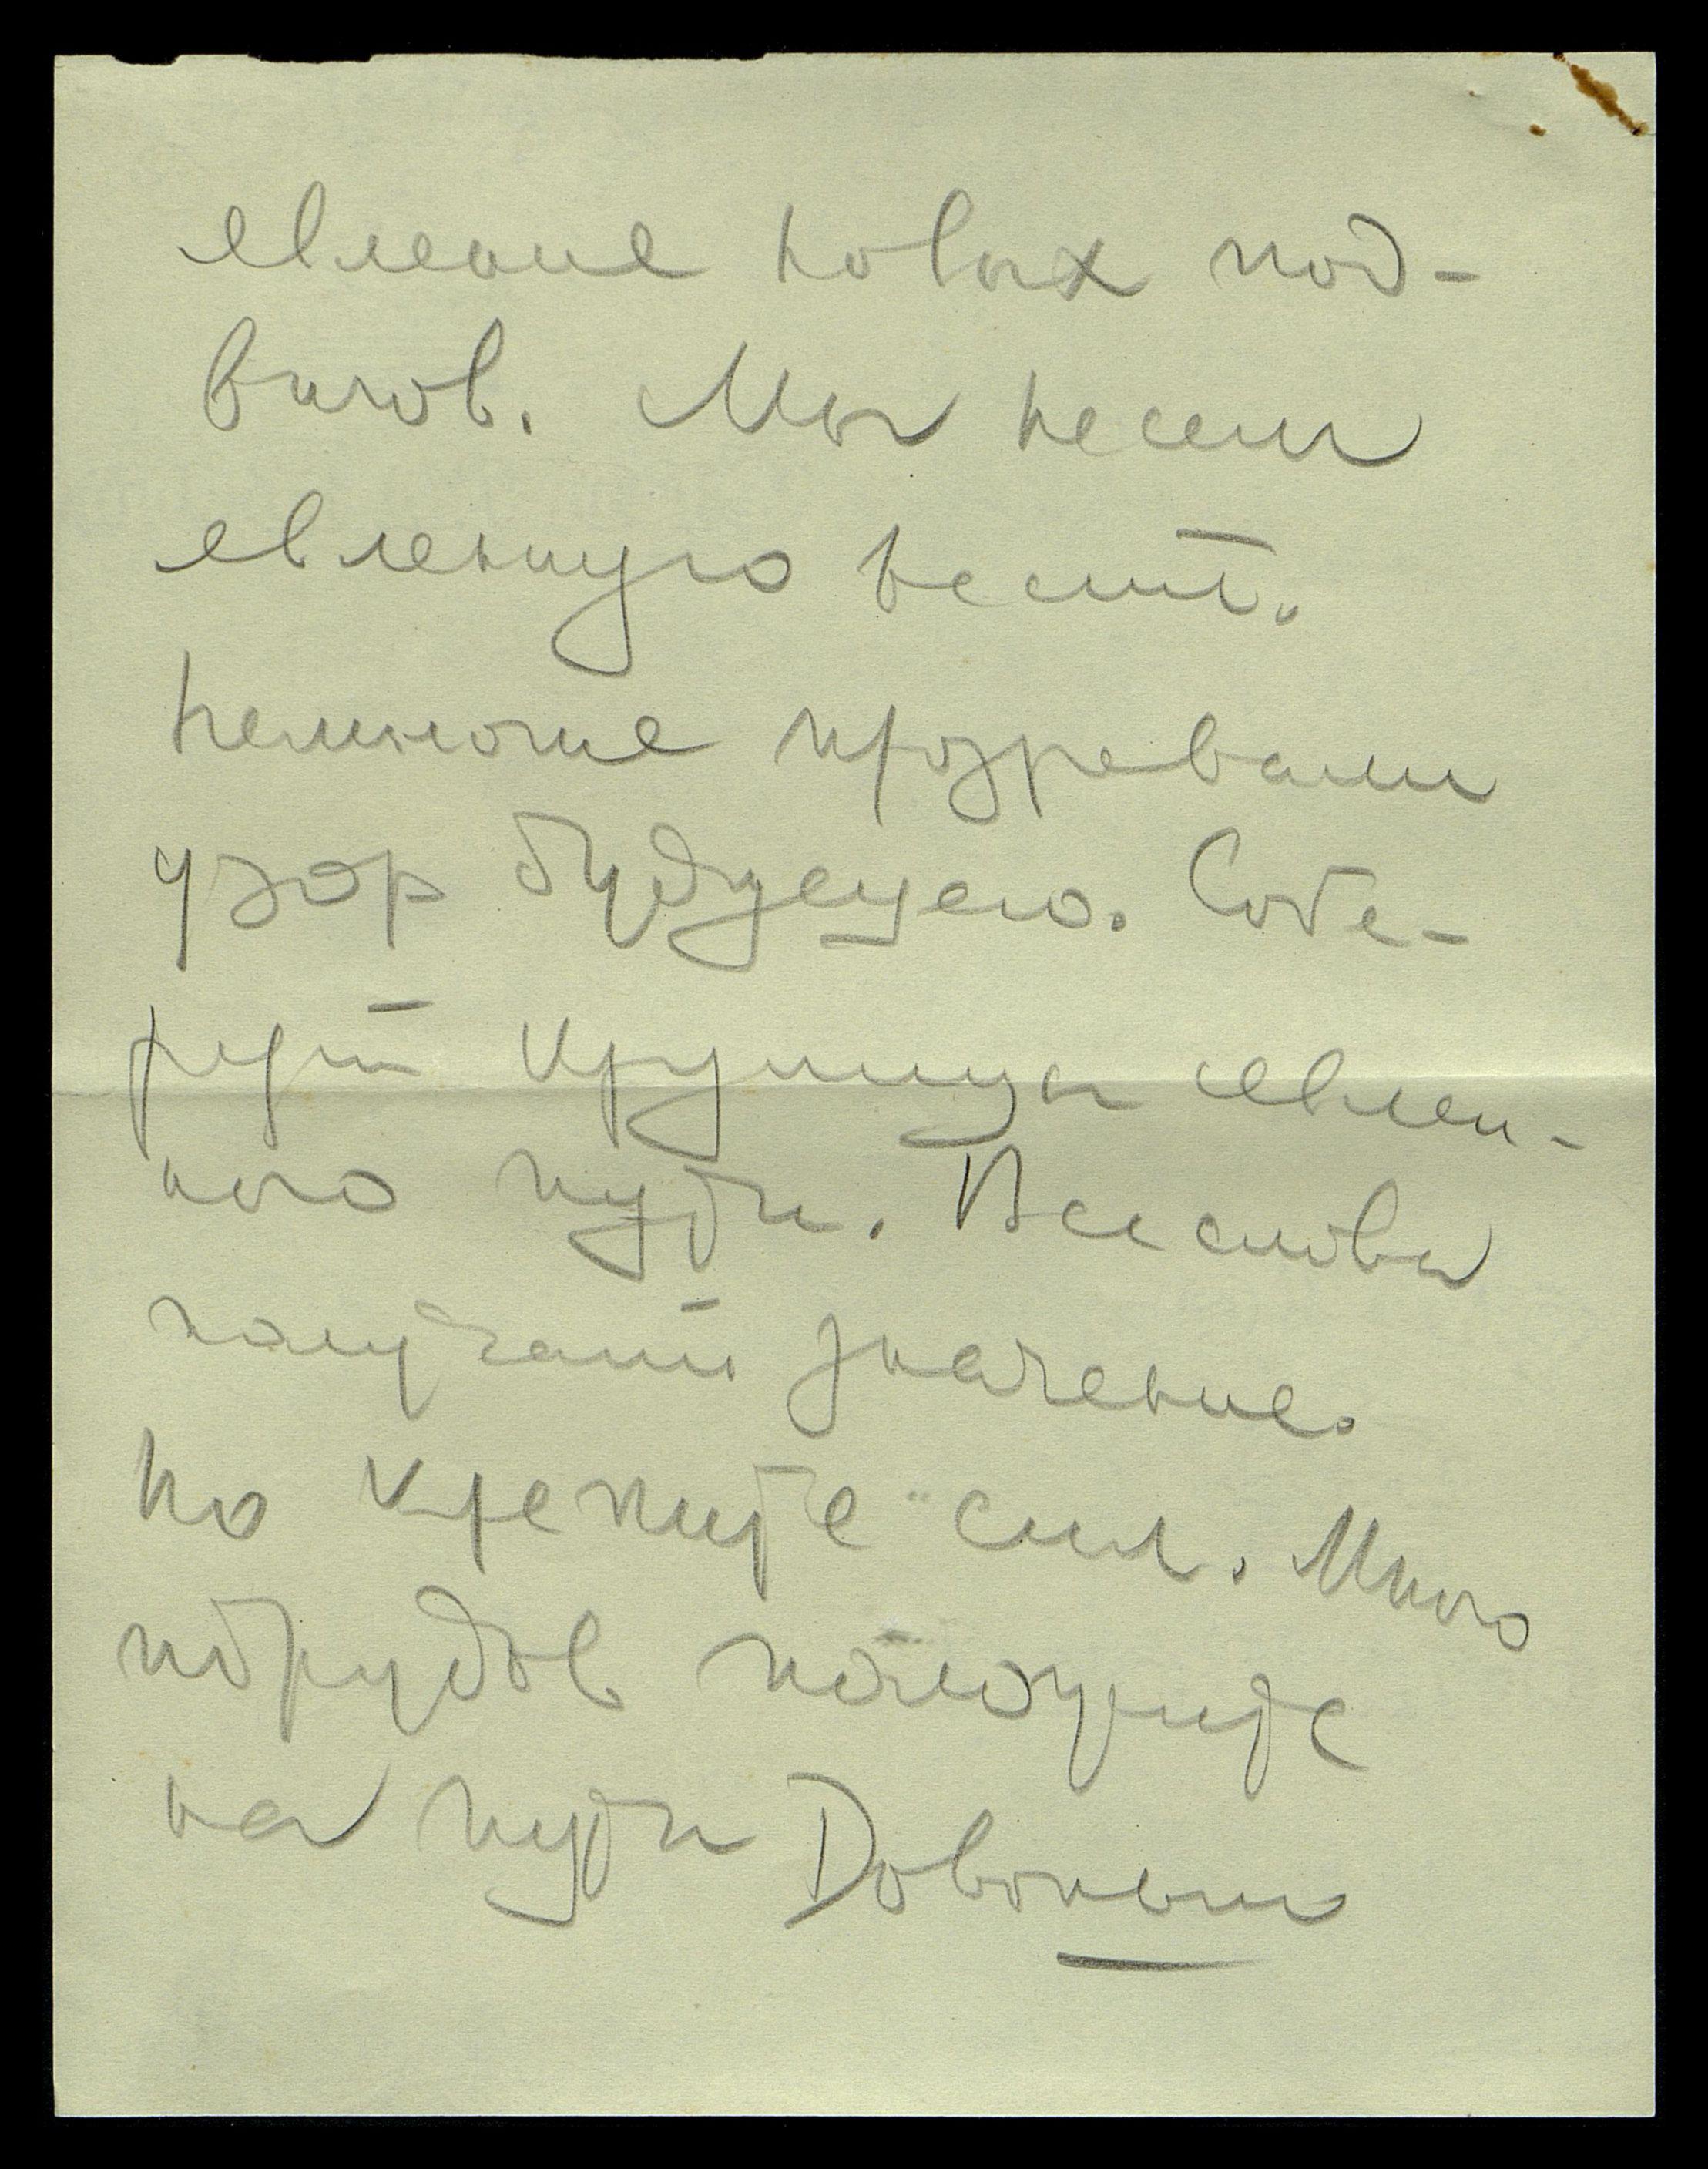 явление новых под-
вигов. Мы несем
явленную весть.
Немногие прозревали
узор будущего. Собе-
рут крупицы явлен-
ного пути. Все слова
получат значение.
Но крепите сил. Много
потрудов положите
на пути Довольно